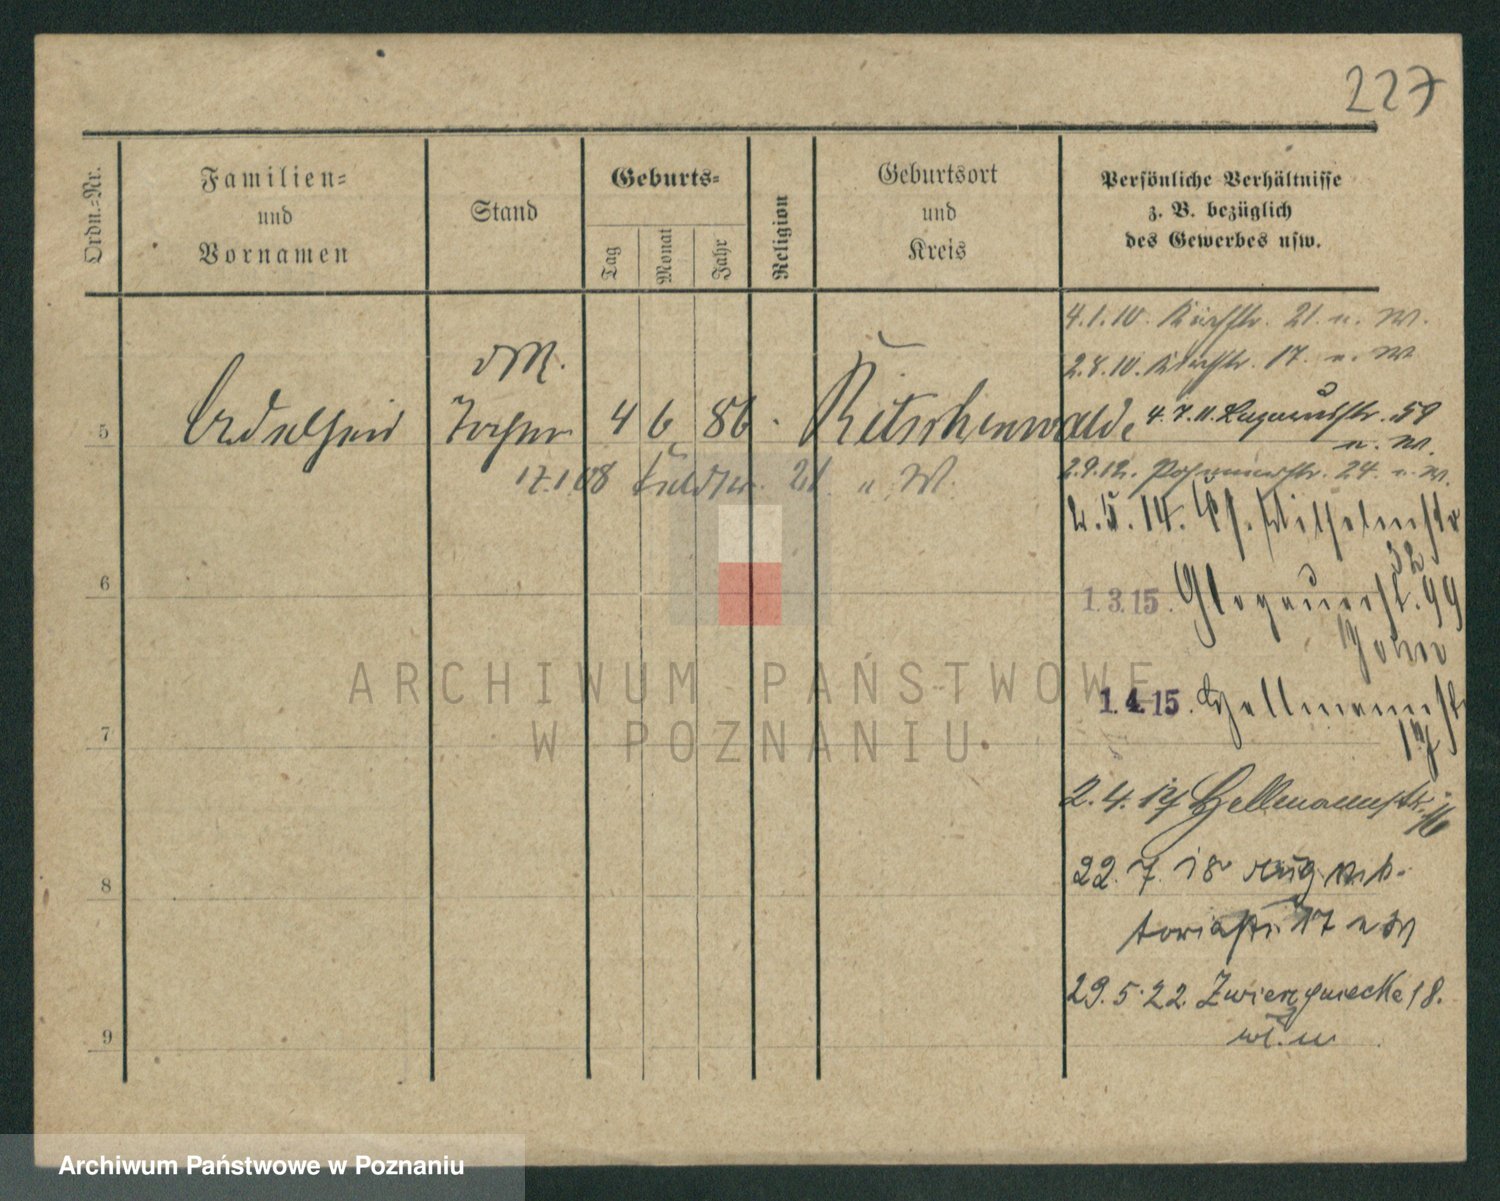 227
Ordn.-Nr.
Familien-
und
Vornamen
Stand
Geburts-
Tag
Monat
Jahr
Religion
Geburtsort
und
Kreis
Persönliche Verhältnisse
z. B. bezüglich
des Gewerbes usw.
4.1.10. Kirchstr. 21. u. W.
2.8.10. Kirchstr. 17. u. W
5
Adelheid
Tochter
4 6 86.
Ritschenwalde
4.7.11. Str. 59
u. W.
17.1.08 Feldstr. 21 u W.
2.9.12. Posenerstr. 24. u. W.
2.5.14. Wilhelmstr
32
6
1.3.15. Glogauerst. 99
1.4.15. Hellmannst
17
7
2.4.17 Hellmannstr. 16
8
22.7.18 Aug Vik-
toriastr 17 u W
29.5.22. Zwierzyniecke 18.
9
ARCHIWUM PAŃSTWOWE
W POZNANIU
Archiwum Państwowe w Poznaniu